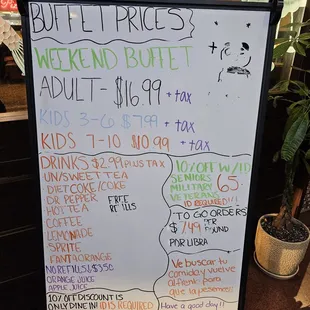 BUFFET PRICES
WEEKEND BUFFET
ADULT- $16.99 + tax
KIDS 3-6 $7.99 + tax
KIDS 7-10 $10.99 + tax
DRINKS $2.99 PLUS TAX
UN/SWEET TEA
DIET COKE/COKE
DR PEPPER
HOT TEA
FREE
REFILLS
COFFEE
LEMONADE
SPRITE
FANTA ORANGE
NO REFILLS $3.50
ORANGE JUICE
APPLE JUICE
10% DISCOUNT IS
ONLY DINE IN! ID IS REQUIRED
10% OFF W/ID
SENIORS 65
MILITARY
VETERANS
ID REQUIRED!!!
TO GO ORDERS
$ 7.49 PER
POUND
POR LIBRA
Ve buscar tu
comida y vuelve
al frente para
que la pesemos!
Have a good day!!